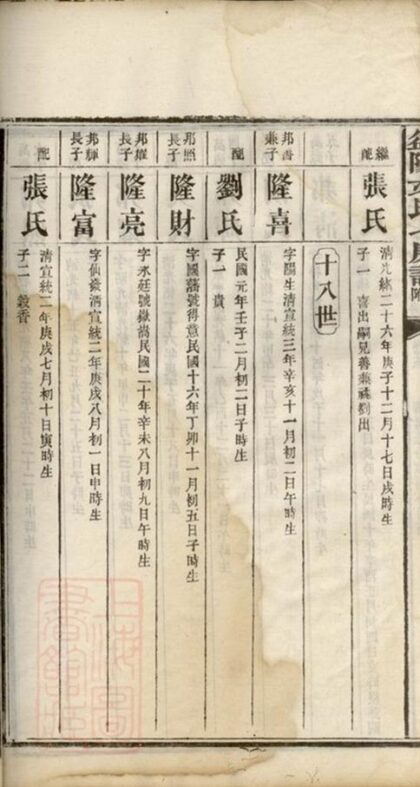 繼配
張氏
清光緒二十六年庚子十二月十七日戌時生
子一 喜出嗣兄善兼祧劉出
十八世
邦善兼子
隆喜
字陽生清宣統三年辛亥十一月初二日午時生
配
劉氏
民國元年壬子二月初二日子時生
子一 貴
邦照長子
隆財
字國藩號得意民國十六年丁卯十一月初五日子時生
邦耀長子
隆亮
字永廷號嶽嵩民國二十年辛未八月初九日午時生
邦輝長子
隆富
字仙嶽清宣統二年庚戌八月初一日申時生
配
張氏
清宣統二年庚戌七月初十日寅時生
子二 穀香
上海圖書館藏